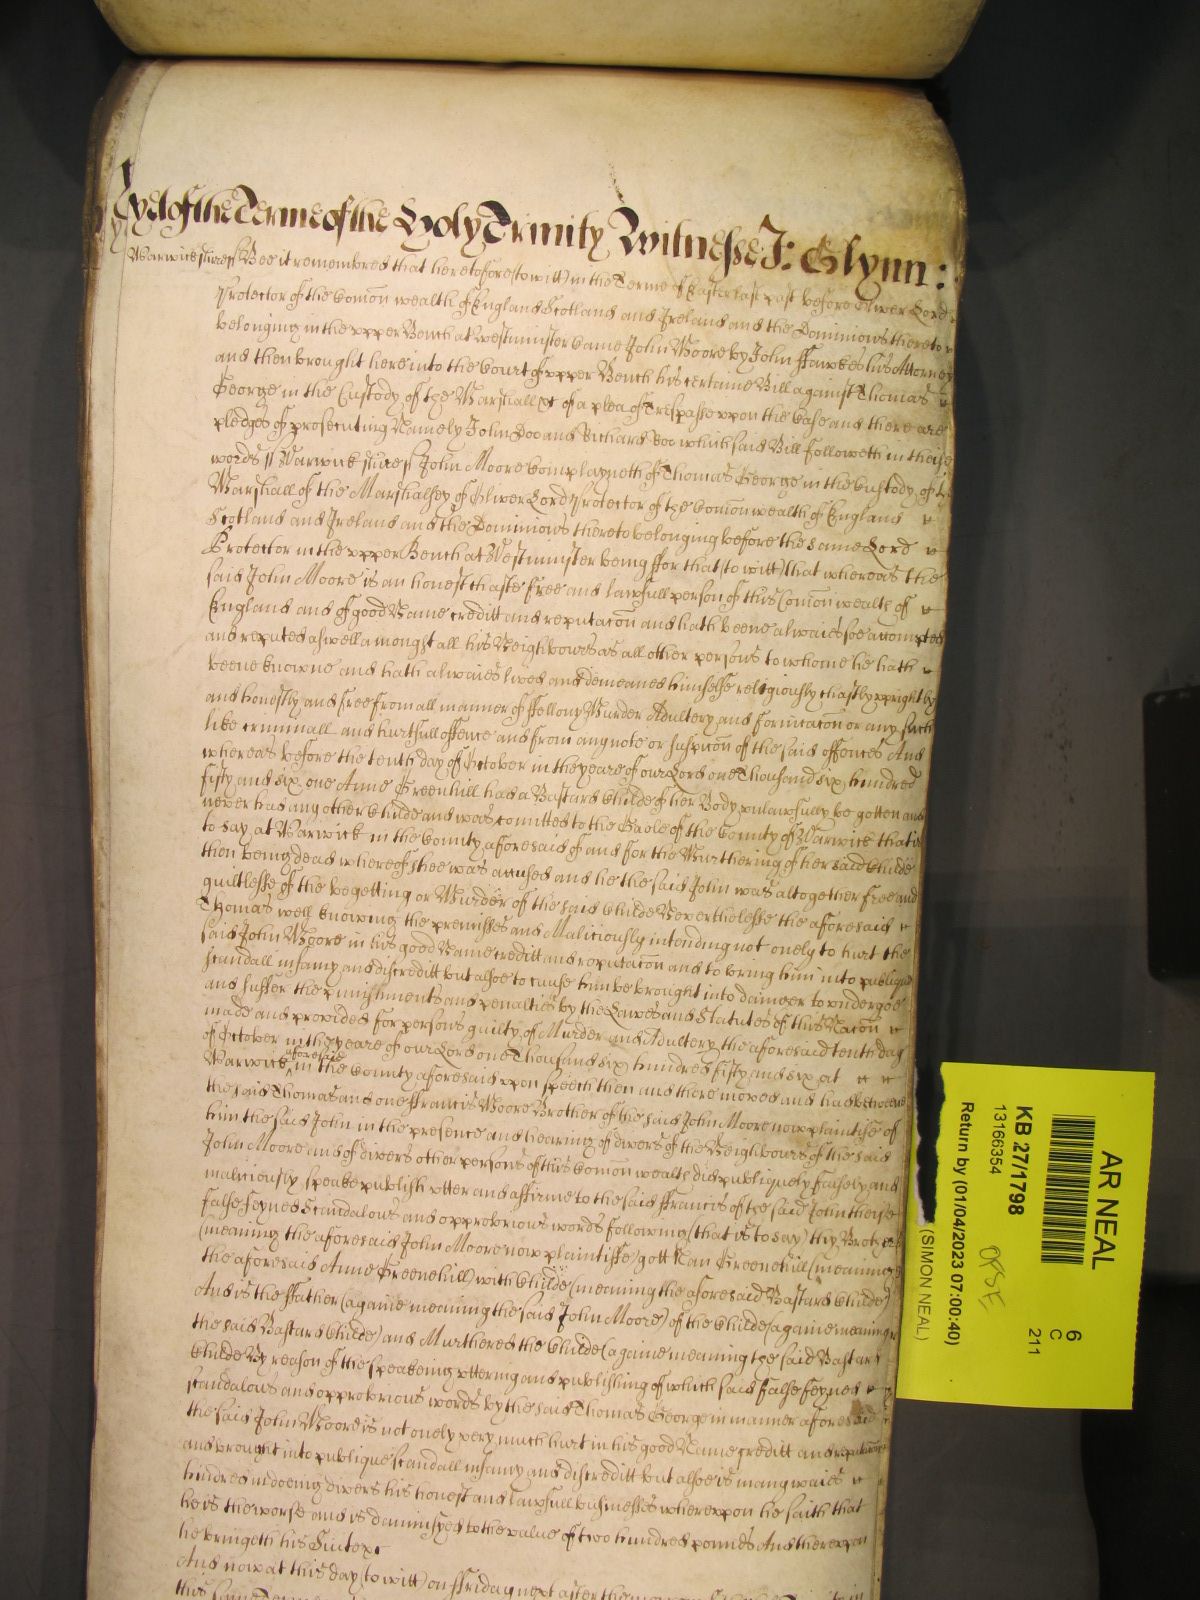 Yet of the Terme of the Holy Trinity Witnesse J: Glynn:
Warwickshire ss Bee it remembred that heretofore (to witt) in the Terme of Easter last past before Oliver Lord
Protector of the Comōn wealth of England Scotland and Ireland and the Dominions thereto
belonging in the upper Bench at Westminster Came John Moore by John Ffawkes his Attorney
and then brought here into the Court of upper Bench his certaine Bill against Thomas
George in the Custody of the Marshall &c of a plea of Trespasse upon the Case and there are
pledges of prosecuting Namely John Doo and Richard Roo which said Bill followeth in theise
words ss Warwick shire ss John Moore Complayneth of Thomas George in the Custody of the
Marshall of the Marshalsey of Oliver Lord Protector of the Comōn wealth of England
Scotland and Ireland and the Dominions thereto belonging before the same Lord
Protector in the upper Bench at Westminster being ffor that (to witt) that whereas the
said John Moore is an honest chaste free and lawfull person of this Comōn wealth of
England and of good Name creditt and reputacōn and hath beene alwaies soe accompted
and reputed aswell amongst all his Neighbours as all other persons to whome he hath
beene knowne and hath alwaies lived and demeaned himselfe religiously chastly uprightly
and honestly and free from all manner of ffellony Murder Adultery and fornicacōn or any such
like criminall and hurtfull offence and from any note or suspicōn of the said offences And
whereas before the tenth day of October in the yeare of our Lord one Thousand six hundred
fifty and six one Anne Greenhill had a Bastard Childe of her Body unlawfully begotten and
never had any other Childe and was comitted to the Gaole of the County of Warwick that is
to say at Warwick in the County aforesaid of and for the Murthering of her said Childe
then being dead whereof shee was accused and he the said John was altogether free and
guiltlesse of the begetting or Murder of the said Childe Neverthelesse the aforesaid
Thomas well knowing the premisses and Maliciously intending not onely to hurt the
said John Moore in his good Name creditt and reputacōn and to bring him into publique
scandall infamy and discreditt but alsoe to cause him be brought into daunger to undergoe
and suffer the punishments and penalties by the Lawes and Statutes of this Nacōn
made and provided for persons guilty of Murder and Adultery the aforesaid tenth day
of October in the yeare of our Lord one Thousand six hundred fifty and six at
Warwick aforesaid in the County aforesaid upon speech then and there moved and had betweene
the said Thomas and one Ffrancis Moore Brother of the said John Moore now plaintife of
him the said John in the presence and hearing of divers of the Neighbours of the said
John Moore and of divers other persons of this Comōn wealth did publiquely falsely and
maliciously speake publish utter and affirme to the said Ffrancis of the said John theise
false feyned Scandalous and opprobrious words following (that is to say) thy Brother
(meaning the aforesaid John Moore now plaintiffe) gott Nan Greenehill (meaning
the aforesaid Anne Greenehill) with Childe (meaning the aforesaid Bastard Childe)
And is the ffather (againe meaning the said John Moore) of the Childe (againe meaning
the said Bastard Childe) and Murthered the Childe (againe meaning the said Bastard
Childe By reason of the speakeing uttering and publishing of which said false feyned
scandalous and opprobrious words by the said Thomas George in manner aforesaid
the said John Moore is not onely very much hurt in his good Name creditt and reputacōn
and brought into publique scandall infamy and discreditt but alsoe is many waies
hindred in doeing divers his honest and lawfull businesses whereupon he saith that
he is the worse and is damnifyed to the value of two hundred pounds And thereupon
he bringeth his Suite &c
And now at this day (to witt) on Ffriday next after the morrow of the holy Trinity in
this same Terme
AR NEAL
6
C
211
KB 27/1798
13166354
OPSE
Return by (01/04/2023 07:00:40)
(SIMON NEAL)